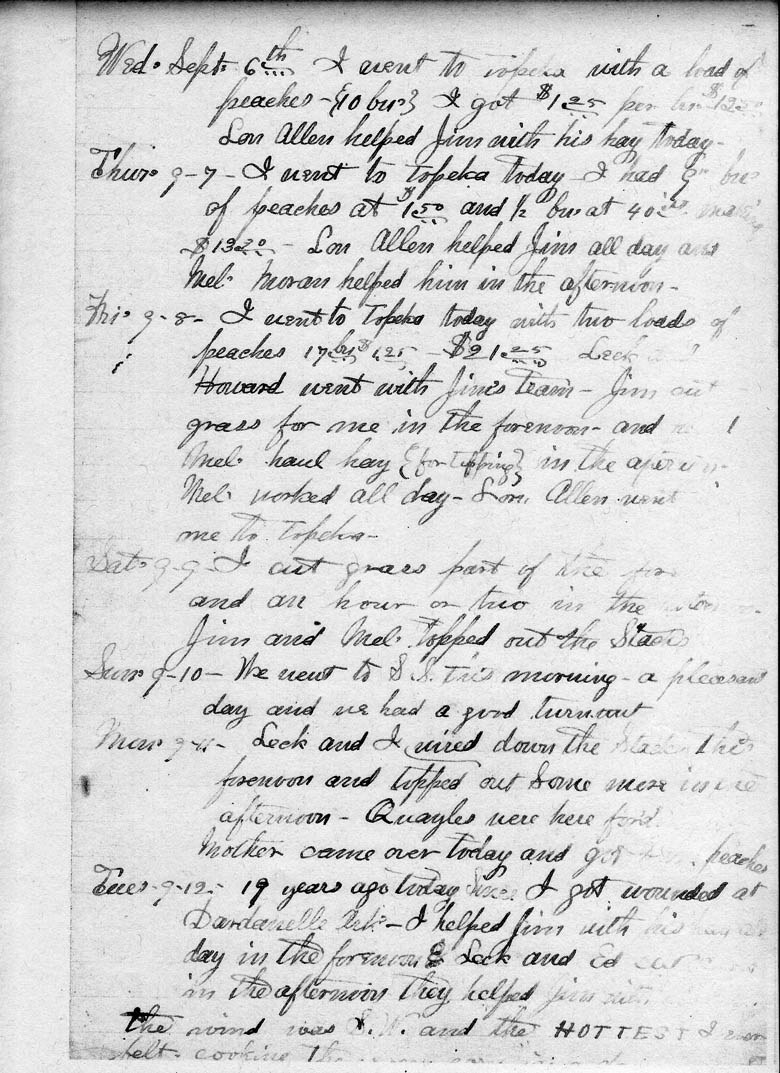 Wed. Sept. 6th I went to Topeka with a load of
peaches - {10 bus} I got $1.25 per
Lon Allen helped Jim with his hay today -
Thur. 9-7 - I went to Topeka today - I had 9 bus
of peaches at $1.50 and 1/2 bu at 40
$13.20 - Lon Allen helped Jim all day and
Mel. Moran helped him in the afternoon -
Fri. 9-8 - I went to Topeka today with two loads of
peaches 17 bu $1.25 - $21.25 Leck
Howard went with Jim's team - Jim cut
grass for me in the forenoon - and
Mel. haul hay {for topping} in the
Mel. worked all day - Lon Allen went
me to Topeka -
Sat. 9-9 - I cut grass part of the
and an hour or two in the
Jim and Mel. topped out the Stacks
Sun. 9-10 - We went to S.S. this morning - a pleasant
day and we had a good turnout
Mon. 9-11 - Leck and I wired down the Stacks this
forenoon and topped out Some more in the
afternoon - Quayles were here for
Mother came over today and got peaches
Tues. 9-12 - 19 years ago today Since I got wounded at
Dardanelle Ark. - I helped Jim with his hay
day in the forenoon & Leck and Ed cut
in the afternoon they helped Jim with
the wind was S.W. and the HOTTEST I ever
felt. cooking the